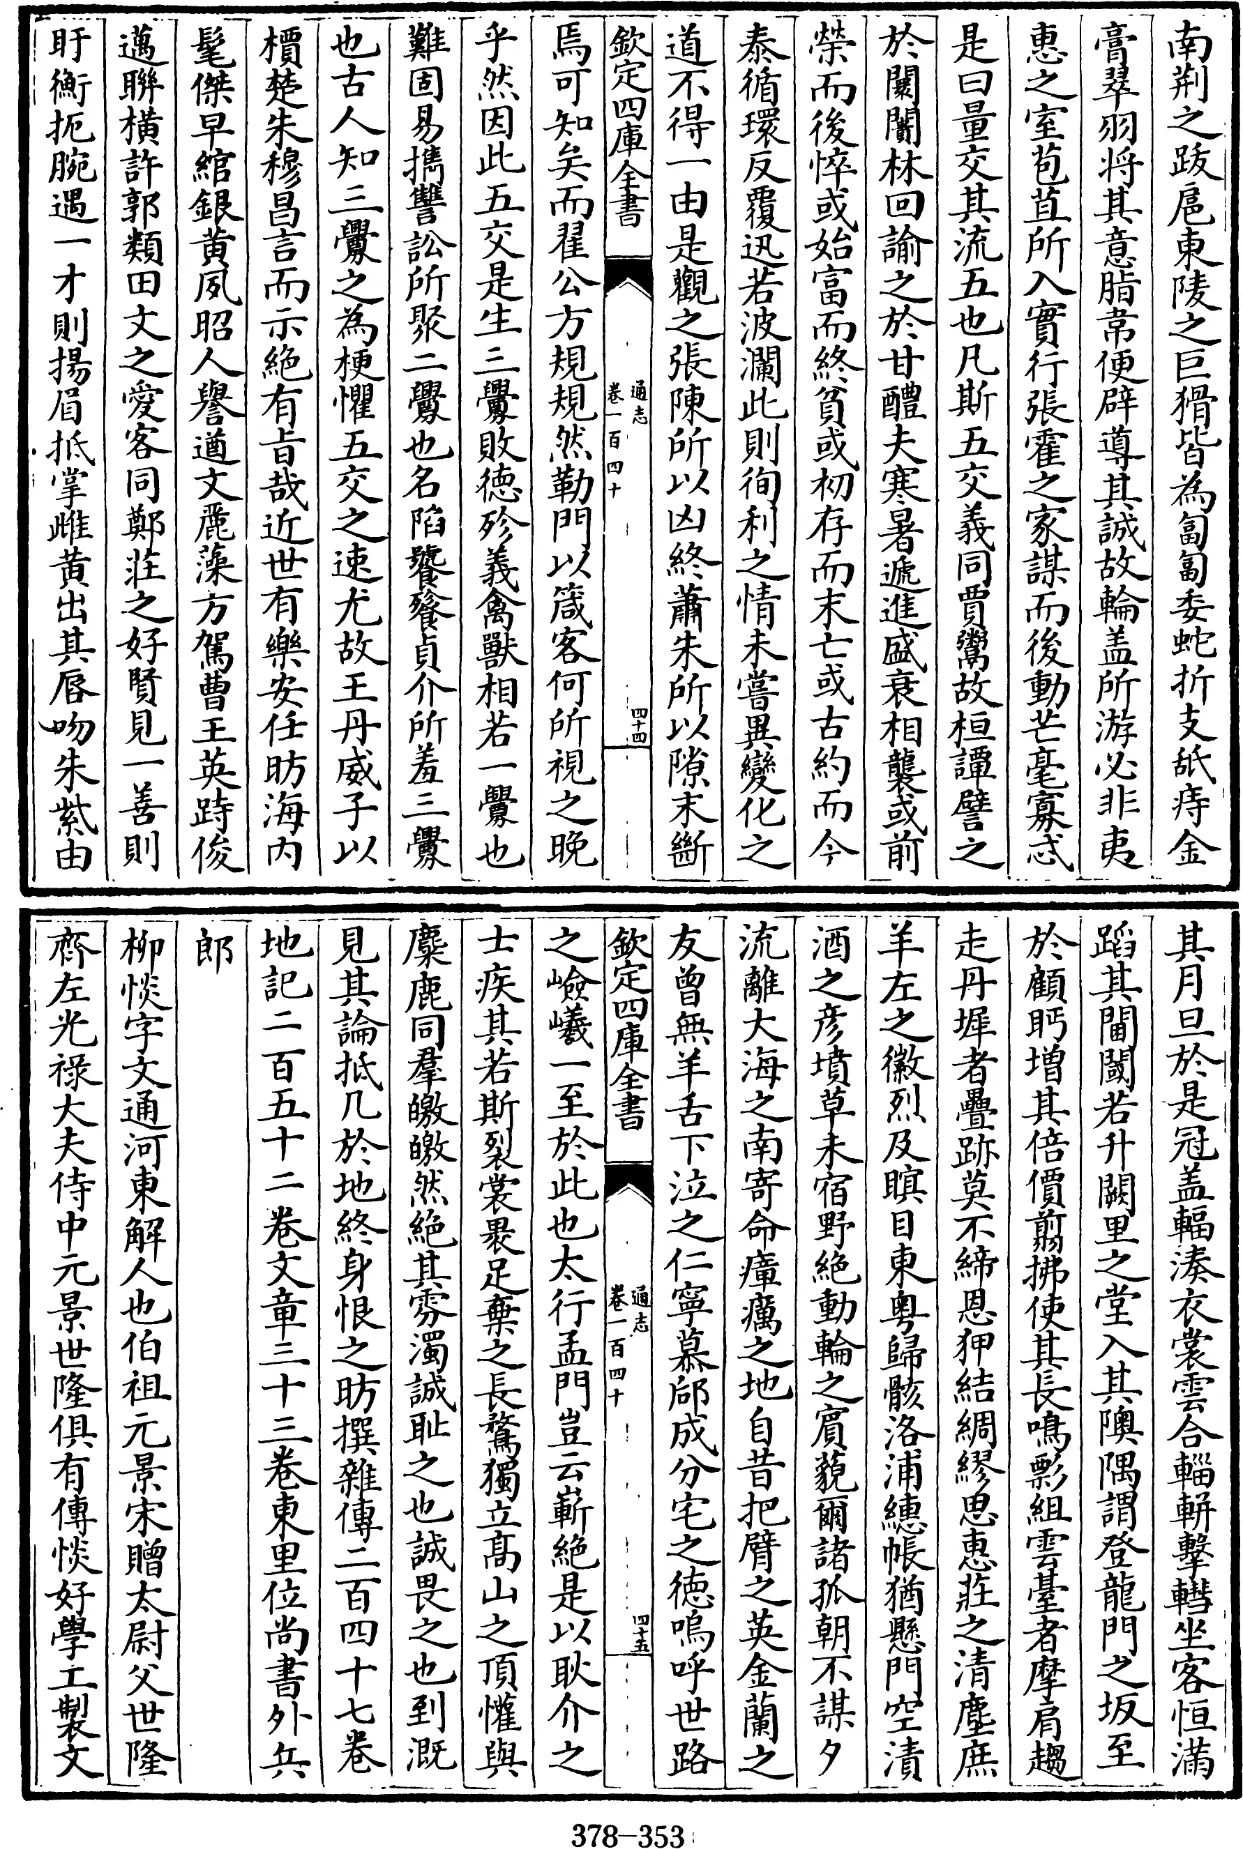 南荆之跋扈東陵之巨猾皆為匐匐委蛇折支舐痔金
膏翠羽将其意脂韋便辟導其誠故輪盖所游必非夷
惠之室苞苴所入實行張霍之家謀而後動芒毫寡忒
是曰量交其流五也凡斯五交義同賈鬻故桓譚譬之
於闤闠林回諭之於甘醴夫寒暑遞進盛衰相襲或前
榮而後悴或始富而終貧或初存而末亡或古約而今
泰循環反覆迅若波瀾此則徇利之情未嘗異變化之
道不得一由是觀之張陳所以凶終蕭朱所以隙末斷
欽定四庫全書
通志
卷一百四十
四十四
焉可知矣而翟公方規規然勒門以箴客何所視之晚
乎然因此五交是生三釁敗徳殄義禽獸相若一釁也
難固易攜讐訟所聚二釁也名陷饕餮貞介所羞三釁
也古人知三釁之為梗懼五交之速尤故王丹威子以
檟楚朱穆昌言而示絶有旨哉近世有樂安任昉海内
髦傑早綰銀黄夙昭人譽遒文麗藻方駕曹王英跱俊
邁聯横許郭類田文之愛客同鄭莊之好賢見一善則
盱衡扼腕遇一才則揚眉抵掌雌黄出其唇吻朱紫由
其月旦於是冠盖輻湊衣裳雲合輜軿擊轊坐客恒滿
蹈其閫閾若升闕里之堂入其隩隅謂登龍門之坂至
於顧眄增其倍價翦拂使其長鳴影組雲臺者摩肩趨
走丹墀者疊跡莫不締恩狎結綢繆思惠莊之清塵庶
羊左之徽烈及瞑目東粤歸骸洛浦繐帳猶懸門空漬
酒之彦墳草未宿野絶動輪之賓藐爾諸孤朝不謀夕
流離大海之南寄命瘴癘之地自昔把臂之英金蘭之
友曾無羊舌下泣之仁寧慕郈成分宅之徳嗚呼世路
欽定四庫全書
通志
卷一百四十
四十五
之嶮巇一至於此也太行孟門豈云嶄絶是以耿介之
士疾其若斯裂裳裹足棄之長騖獨立髙山之頂懽與
麋鹿同羣皦皦然絶其雰濁誠耻之也誠畏之也到溉
見其論抵几於地終身恨之昉撰雜傳二百四十七巻
地記二百五十二巻文章三十三巻東里位尚書外兵
郎
柳惔字文通河東解人也伯祖元景宋贈太尉父世隆
齊左光禄大夫侍中元景世隆俱有傳惔好學工製文
378-353